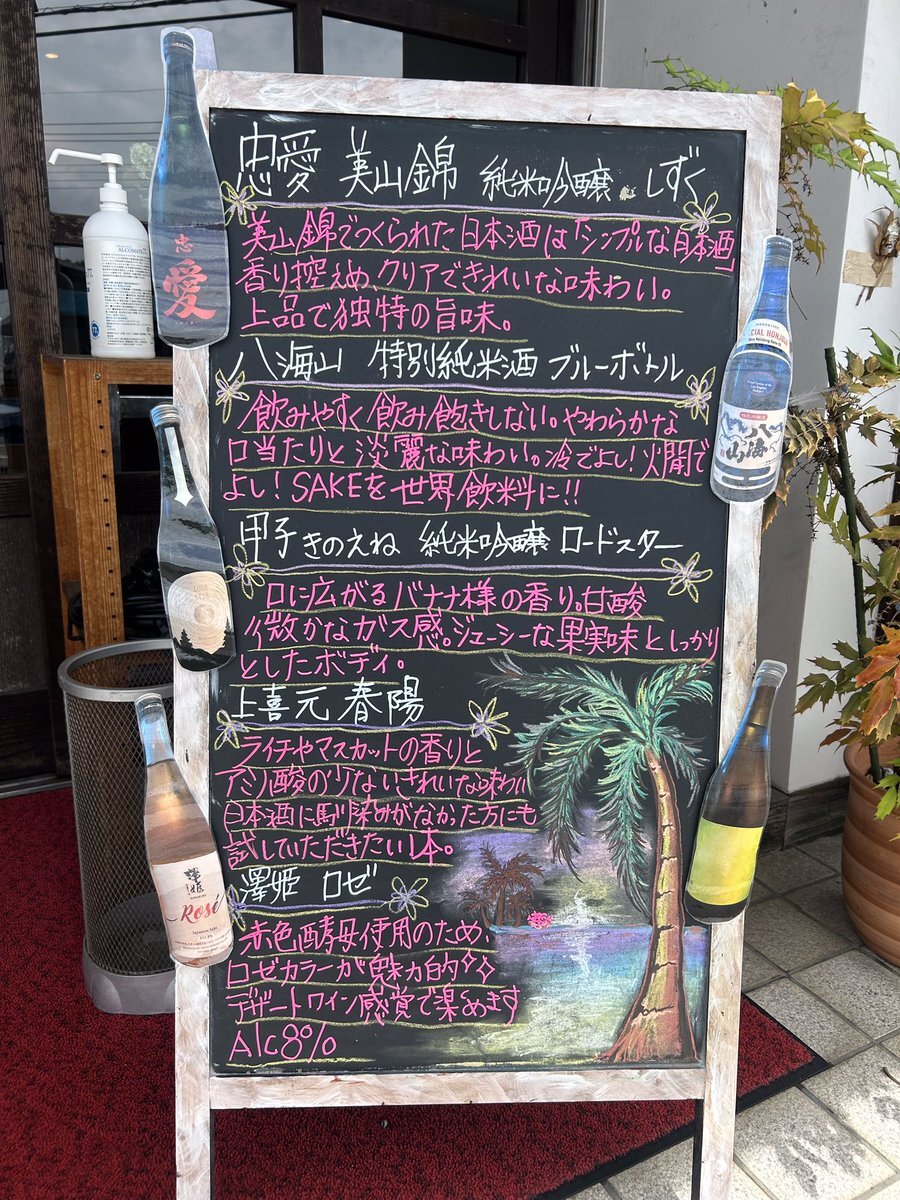 忠愛 美山錦 純米吟醸 しずく
美山錦でつくられた日本酒は「シンプルな日本酒
香り控えめ、クリアできれいな味わい。
上品で独特の旨味。
八海山 特別純米酒 ブルーボトル
飲みやすく飲み飽きしない。やわらかな
口当たりと淡麗な味わい。冷でよし!火閒で
よし!SAKEを世界飲料に!!
甲子きのえね 純米吟醸 ロードスター
口に広がるバナナ様の香り。甘酸
微かなガス感。ジューシーな果実味としっかり
としたボディ。
上喜元 春陽
ライチやマスカットの香りと
アミノ酸の少ないきれいな味わい
日本酒に馴染みがなかった方にも
試していただきたい1本。
澤姫 ロゼ
赤色酵母使用のため、
ロゼカラーが魅力的✧✧
デザートワイン感覚で楽めます
Alc8%
忠
愛
ALCOMATE
SPECIAL HONJOZO
八海山
澤姫
Rosé
Japanese Sake